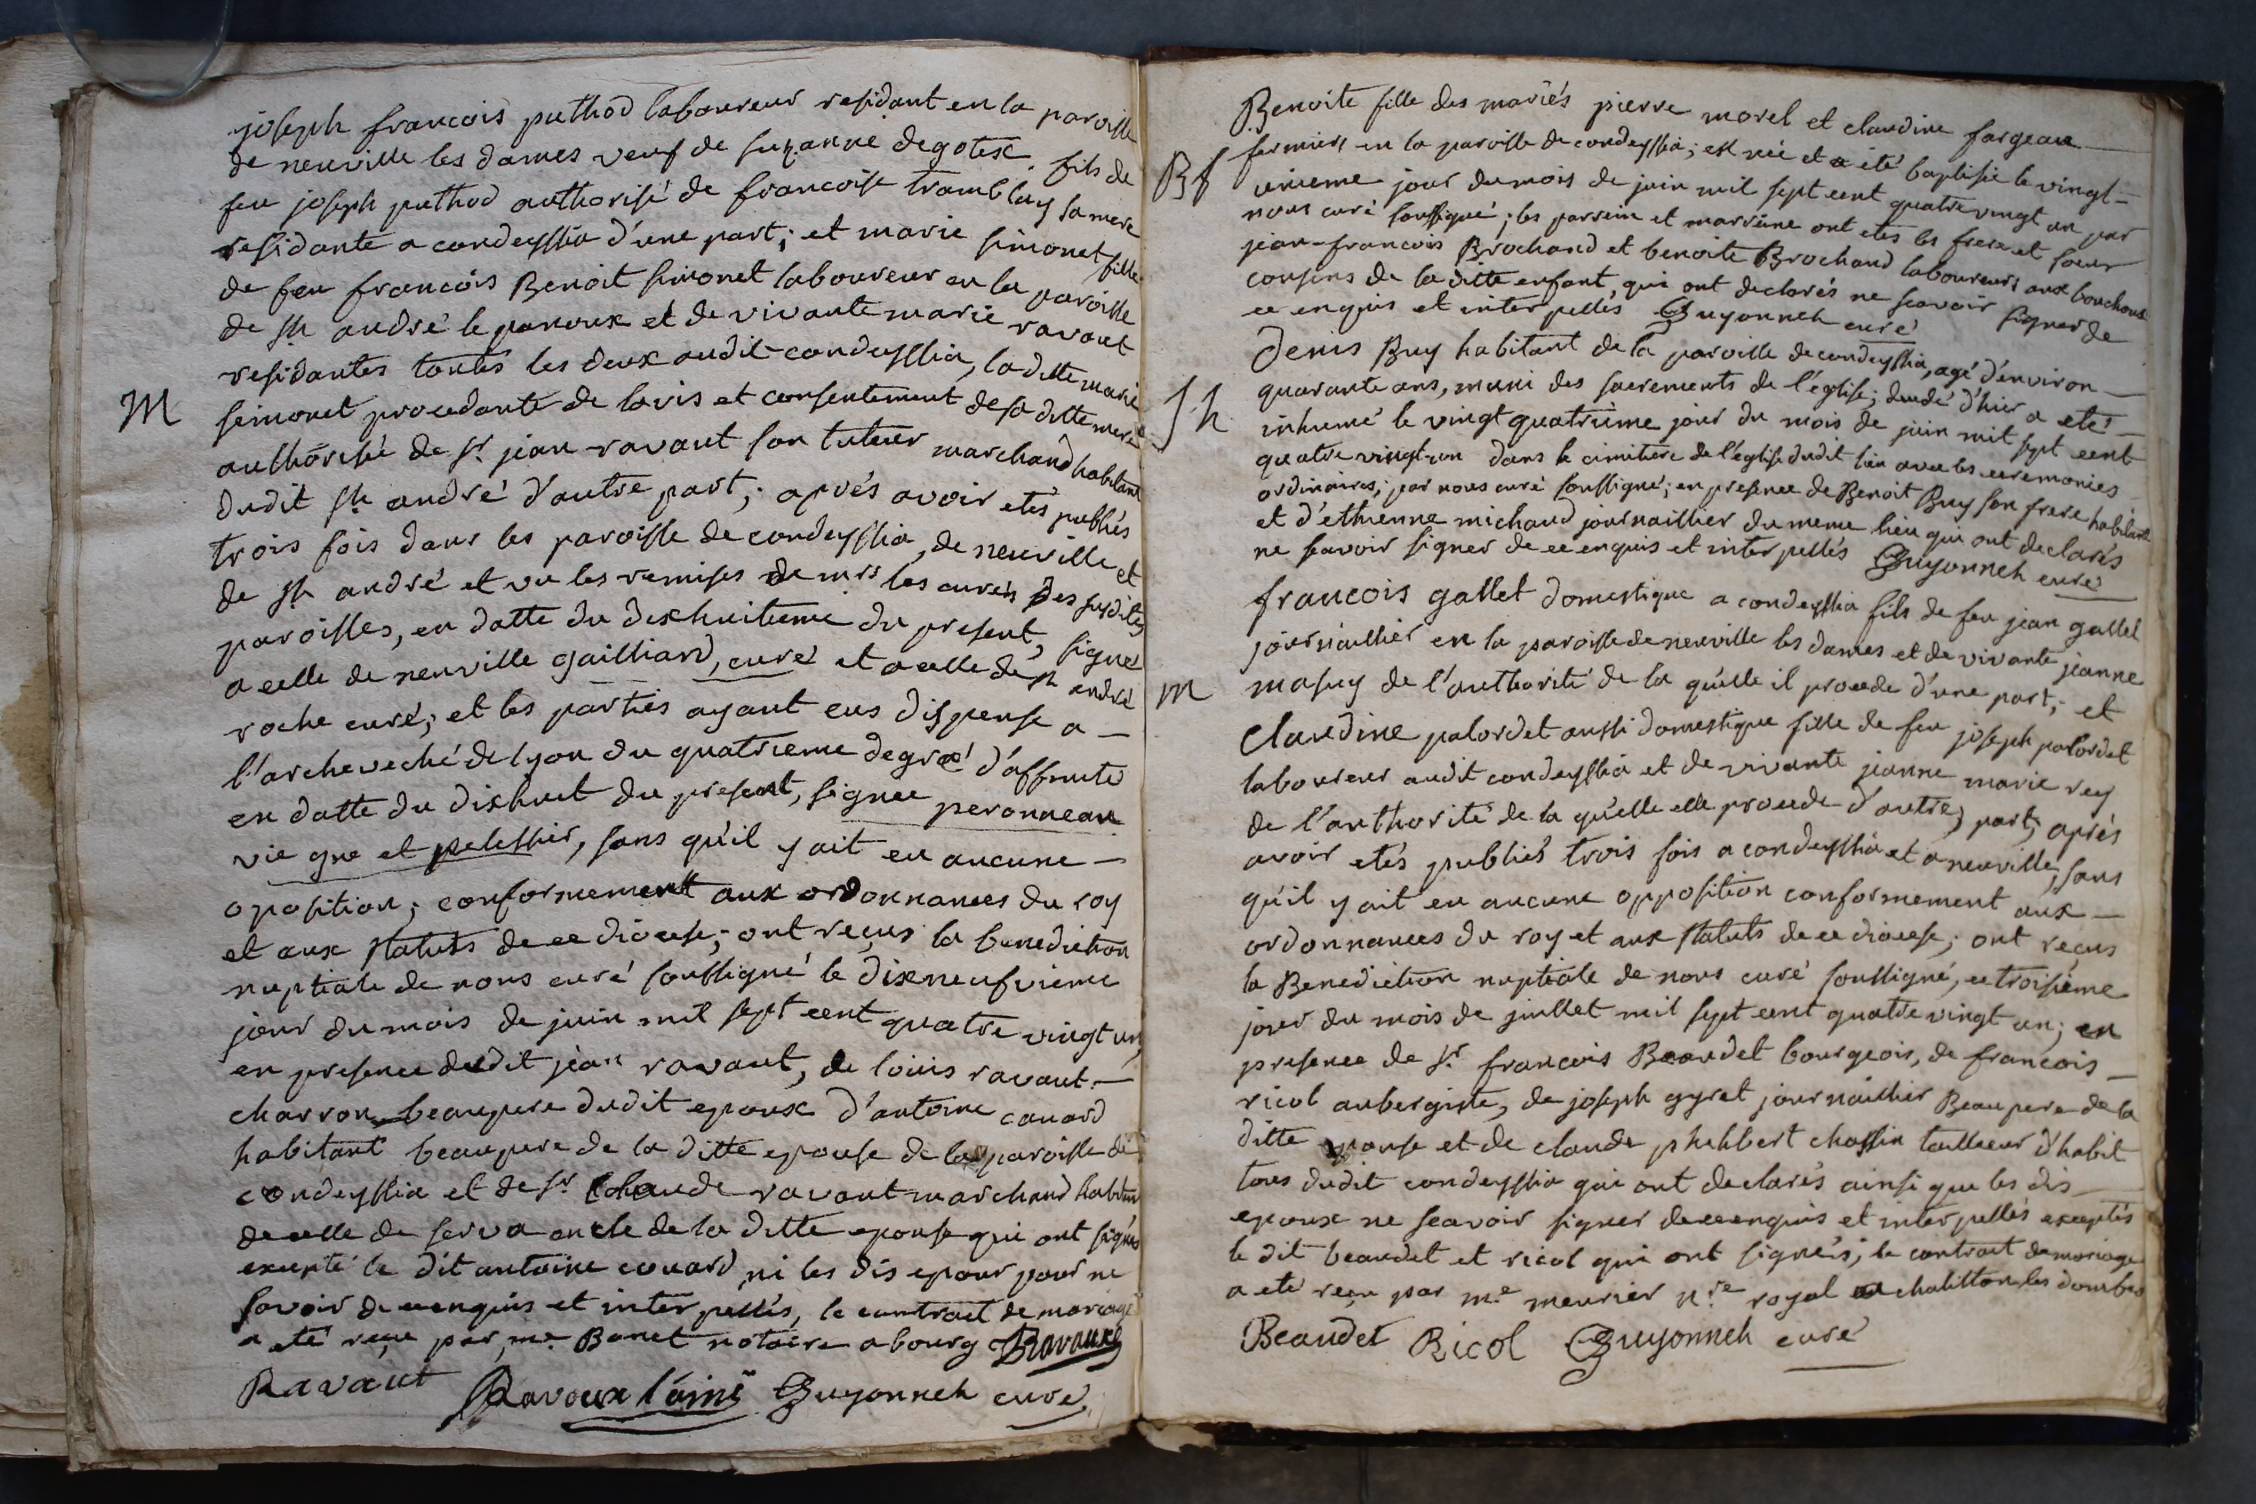 joseph francois puthod laboureur residant en la paroisse
de neuville les dames veuf de suzanne degotex fils de
feu joseph puthod authorisé de francoise tramblay sa mere
residante a condeyssia d'une part; et marie simonet fille
de feu francois Benoit simonet laboureur en la paroisse
de st andré le panoux et de vivante marie ravaut
residantes toutes les deux audit condeyssia, la ditte marie
M
simonet procedante de lavis et consentement de sa ditte mere
authorisée de sr jean ravaut son tuteur marchand habitant
dudit st andré d'autre part; aprés avoir etés publiés
trois fois dans les paroisse de condeyssia, de neuville et
de st andré et vu les remises de mrs les curés des susdites
paroisses, en datte du dixhuitieme du present, signé
a celle de neuville gailliard, curé et a celle de st andré
roche curé; et les parties ayant eus dispense a —
l'archeveché de lyon du quatrieme degré d'affinité
en datte du dixhuit du present, signee peronneau
vic gne et pelessier, sans qu'il y ait eu aucune —
oposition; conformement aux ordonnances du roy
et aux statuts de ce diocese; ont reçus la benediction
nuptiale de nous curé soussigné le dixneufvieme
jour du mois de juin mil sept cent quatre vingt un,
en presence dudit jean ravaut, de louis ravaut —
charron beaupere dudit epoux d'antoine couard
habitant beaupere de la ditte epouse de la paroisse de
condeyssia et de sr Claude ravaut marchand habitant
de celle de serva oncle de la ditte epouse qui ont signés
excepté le dit antoine couard, ni les dis epoux pour ne
savoir de ce enquis et interpellés, le contract de mariage
a eté reçu par me Bonet notaire a bourg Ravaux
Ravaut Ravoux l'ainé Guyonneh curé
Benoite fille des mariés pierre morel et claudine fargeau —
fermiers en la paroisse de condeyssia; est née et a été baptisée le vingt-
Bf
unieme jour du mois de juin mil sept cent quatre vingt un par
nous curé soussigné; les parrein et marreine ont etes les frere et soeur
jean-francois Brochand et benoite Brochand laboureurs aux bouchoux
cousins de la ditte enfant, qui ont declarés ne scavoir signer de
ce enquis et interpellés Guyonneh curé
Denis Buy habitant de la paroisse de condeyssia, agé d'environ —
quarante ans, muni des sacrements de l'église; decedé d'hier a eté —
Sh
inhumé le vingt quatrieme jour du mois de juin mil sept cent
quatre vingt-un dans le cimitiere de l'église dudit lieu avec les ceremonies
ordinaires; par nous curé soussigné; en presence de Benoit Buy son frere habitant
et d'ethienne michaud journaillier du meme lieu qui ont declarés
ne scavoir signer de ce enquis et interpellés Guyonneh curé
francois gallet domestique a condeyssia fils de feu jean gallet
journaillier en la paroisse de neuville les dames et de vivante jeanne
m
masuy de l'authorité de la quelle il procede d'une part; et
Claudine palordet aussi domestique fille de feu joseph palordet
laboureur audit condeyssia et de vivante jeanne marie rey
de l'authorité de la qu'elle elle procede d'autre, part; aprés
avoir etés publiés trois fois a condeyssia et a neuville, sans
qu'il y ait eu aucune opposition conformement aux —
ordonnances du roy et aux statuts de ce diocese; ont reçus
la Benediction nuptiale de nous curé soussigné, ce troisieme
jour du mois de juillet mil sept cent quatre vingt un; en
presence de sr francois Beaudet bourgeois, de francois —
ricol aubergiste, de joseph gyret journaillier Beaupere de la
ditte epouse et de claude philibert chassin tailleur d'habit
tous dudit condeyssia qui ont declarés ainsi que les dis —
epoux ne scavoir signer de ce enquis et interpellés exceptés
le dit beaudet et ricol qui ont signés; le contract de mariage
a eté reçu par me meurier nre royal a chatillon les dombes
Beaudet Ricol Guyonneh curé